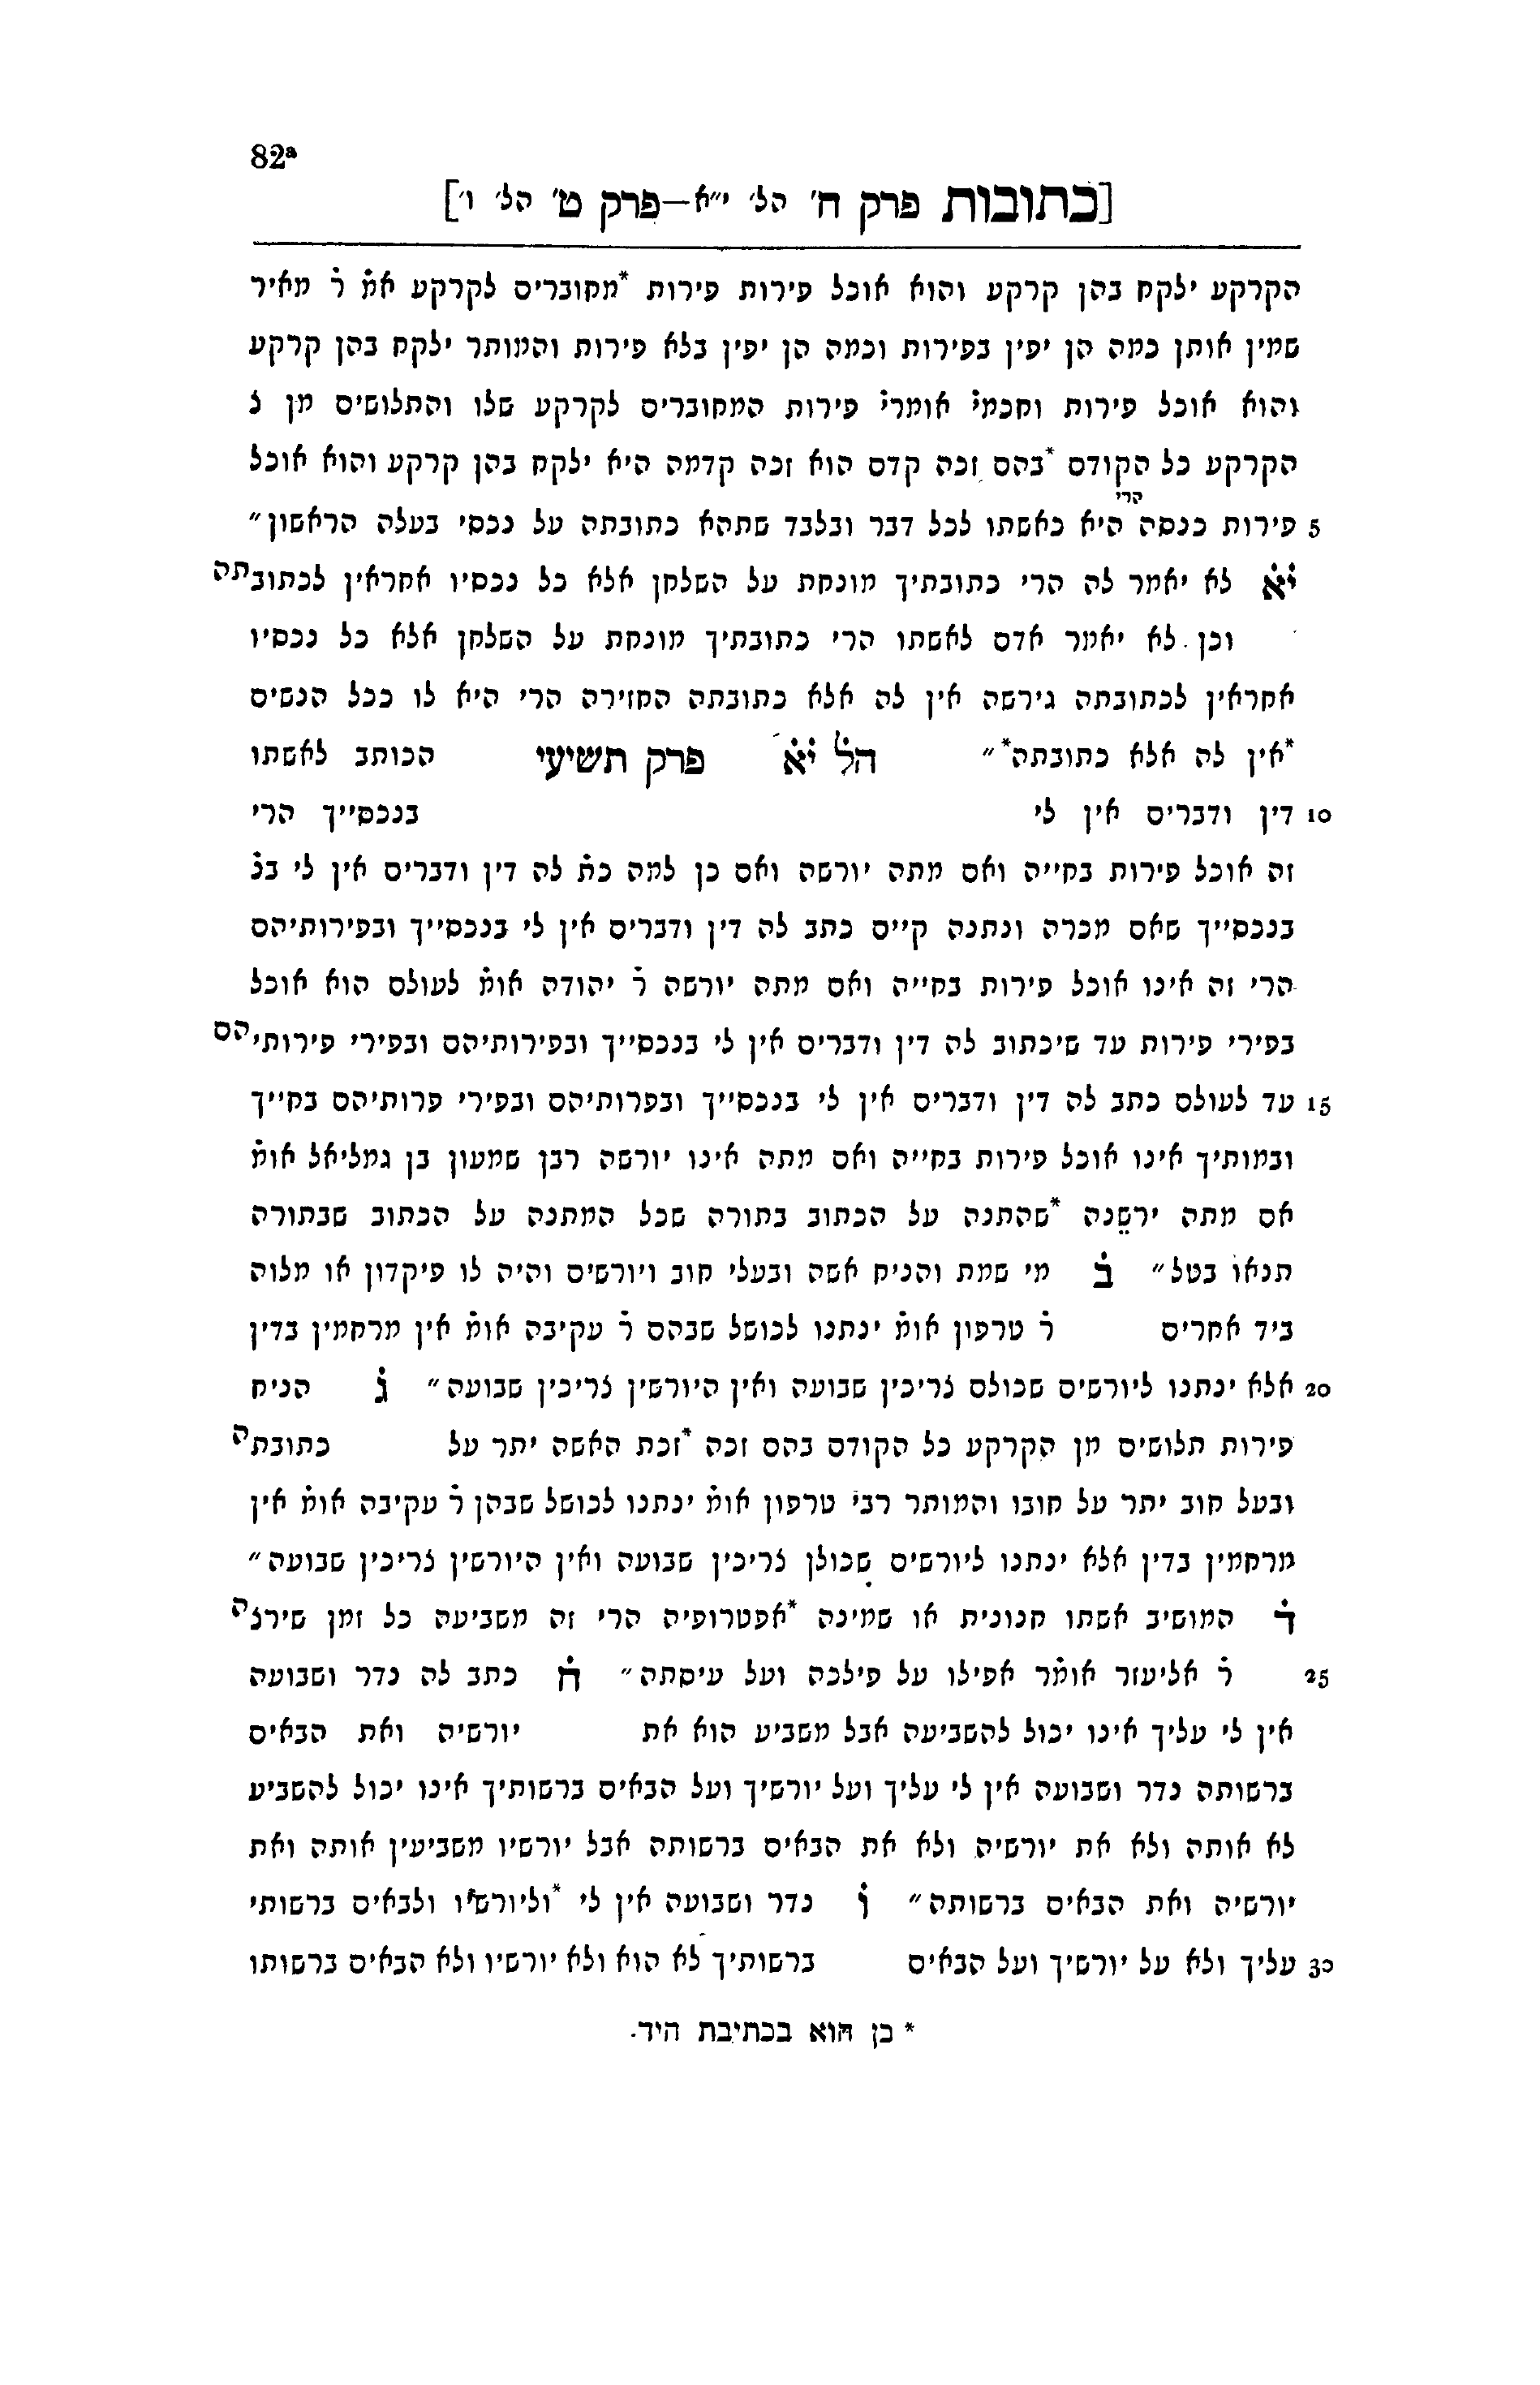 82ª
[כתובות פרק ח' הל' י״א—פרק ט' הל' ו']
הקרקע ילקח בהן קרקע והוא אוכל פירות פירות *מחוברים לקרקע אמ̇ ר̇ מאיר
שמין אותן כמה הן יפין בפירות וכמה הן יפין בלא פירות והמותר ילקח בהן קרקע
והוא אוכל פירות וחכמי̇ אומרי̇ פירות המחוברים לקרקע שלו והתלושים מן ל̇
הקרקע כל הקודם *בהם זכה קדם הוא זכה קדמה היא ילקח בהן קרקע והוא אוכל
הרי
5 פירות כנסה היא כאשתו לכל דבר ובלבד שתהא כתובתה על נכסי בעלה הראשון״
י̇א̇ לא יאמר לה הרי כתובתיך מונחת על השלחן אלא כל נכסיו אחראין לכתובתה
וכן לא יאמר אדם לאשתו הרי כתובתיך מונחת על השלחן אלא כל נכסיו
אחראין לכתובתה גירשה אין לה אלא כתובתה החזירה הרי היא לו ככל הנשים
*אין לה אלא כתובתה*״ הל̇ י̇א̇ פרק תשיעי הכותב לאשתו
10 דין ודברים אין לי בנכסייך הרי
זה אוכל פירות בחייה ואם מתה יורשה ואם כן למה כת̇ לה דין ודברים אין לי בנ̇
בנכסייך שאם מכרה ונתנה קיים כתב לה דין ודברים אין לי בנכסייך ובפירותיהם
הרי זה אינו אוכל פירות בחייה ואם מתה יורשה ר̇ יהודה אומ̇ לעולם הוא אוכל
בפירי פירות עד שיכתוב לה דין ודברים אין לי בנכסייך ובפירותיהם ובפירי פירותיהם
15 עד לעולם כתב לה דין ודברים אין לי בנכסייך ובפרותיהם ובפירי פרותיהם בחייך
ובמותיך אינו אוכל פירות בחייה ואם מתה אינו יורשה רבן שמעון בן גמליאל אומ̇
אם מתה ירשנה *שהתנה על הכתוב בתורה שכל המתנה על הכתוב שבתורה
תנאו בטל״ ב̇ מי שמת והניח אשה ובעלי חוב ויורשים והיה לו פיקדון או מלוה
ביד אחרים ר̇ טרפון אומ̇ ינתנו לכושל שבהם ר̇ עקיבה אומ̇ אין מרחמין בדין
20 אלא ינתנו ליורשים שכולם צריכין שבועה ואין היורשין צריכין שבועה״ ג̇ הניח
פירות תלושים מן הקרקע כל הקודם בהם זכה *זכת האשה יתר על כתובתה
ובעל חוב יתר על חובו והמותר רבי̇ טרפון אומ̇ ינתנו לכושל שבהן ר̇ עקיבה אומ̇ אין
מרחמין בדין אלא ינתנו ליורשים שכולן צריכין שבועה ואין היורשין צריכין שבועה״
ד̇ המושיב אשתו חנונית או שמינה *אפטרופיה הרי זה משביעה כל זמן שירצה
25 ר̇ אליעזר אומ̇ר אפילו על פילכה ועל עיסתה״ ה̇ כתב לה נדר ושבועה
אין לי עליך אינו יכול להשביעה אבל משביע הוא את יורשיה ואת הבאים
ברשותה נדר ושבועה אין לי עליך ועל יורשיך ועל הבאים ברשותיך אינו יכול להשביע
לא אותה ולא את יורשיה ולא את הבאים ברשותה אבל יורשיו משביעין אותה ואת
יורשיה ואת הבאים ברשותה״ ו̇ נדר ושבועה אין לי *וליורשיו ולבאים ברשותי
30 עליך ולא על יורשיך ועל הבאים ברשותיך לא הוא ולא יורשיו ולא הבאים ברשותו
* כן הוא בכתיבת היד.